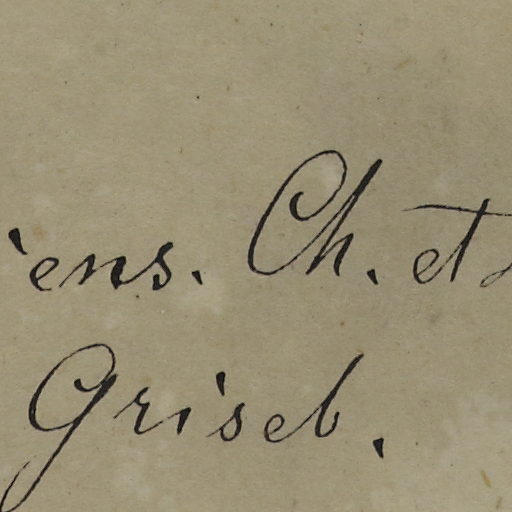 iens. Ch. et
Griseb.